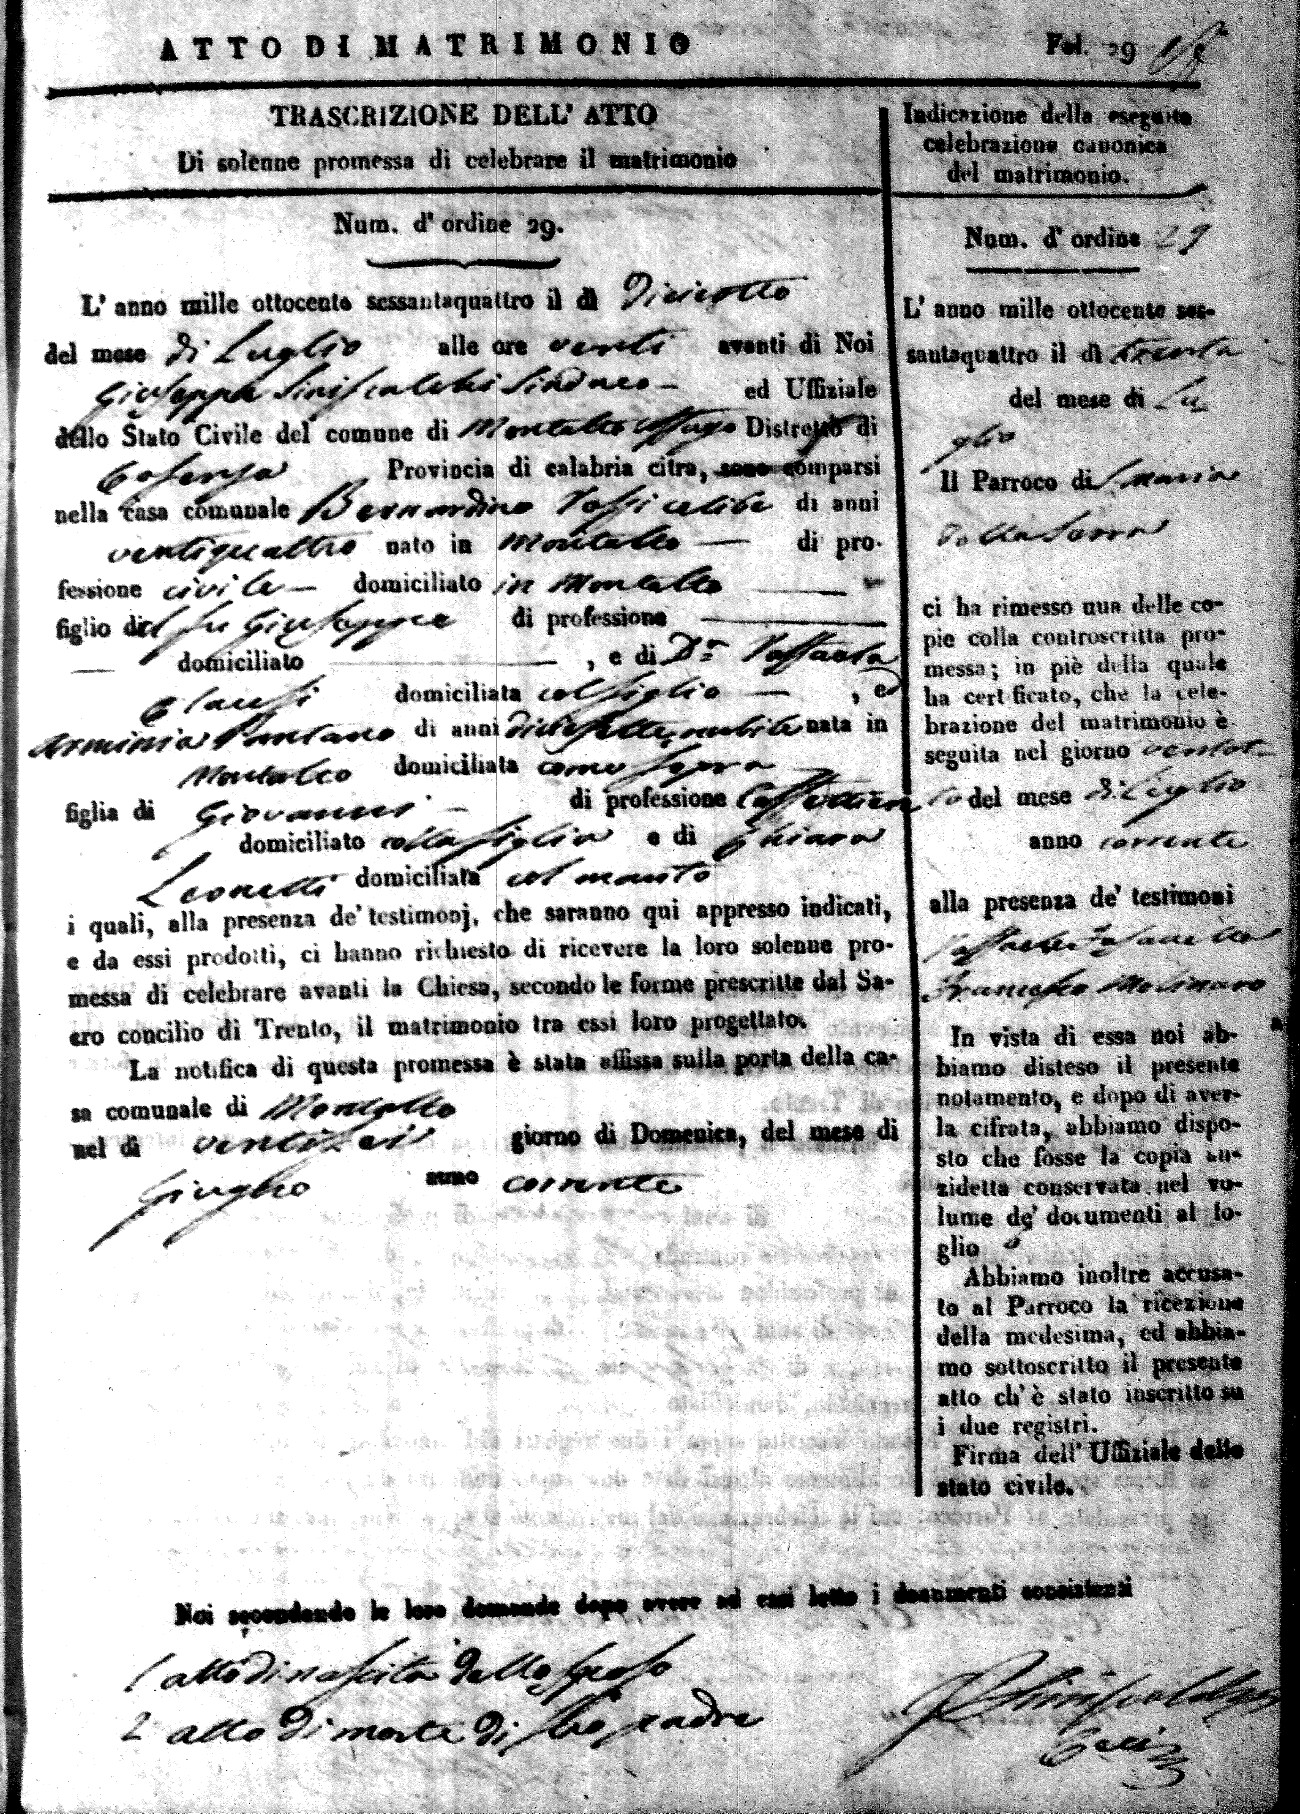 ATTO DI MATRIMONIO
Fol. 29
TRASCRIZIONE DELL' ATTO
Di solenne promessa di celebrare il matrimonio
Num. d' ordine 29.
L' anno mille ottocento sessantaquattro il dì Diciotto
del mese di Luglio alle ore venti avanti di Noi
Giuseppe Siniscalchi Sindaco ed Uffiziale
dello Stato Civile del comune di Montalto Uffugo Distretto di
Cosenza Provincia di calabria citra, sono comparsi
nella casa comunale Bernardino di anni
ventiquattro nato in Montalto di pro-
fessione civile domiciliato in Montalto
figlio del fu Giuseppe di professione
domiciliato , e di Dna Raffaela
domiciliata col figlio , ed
Arminia Pantano di anni diciassette, nubile nata in
Montalto domiciliata come sopra
figlia di Giovanni di professione
domiciliato colla figlia e di Chiara
Leonetti domiciliata col marito
i quali, alla presenza de' testimonj, che saranno qui appresso indicati,
e da essi prodotti, ci hanno richiesto di ricevere la loro solenne pro-
messa di celebrare avanti la Chiesa, secondo le forme prescritte dal Sa-
cro concilio di Trento, il matrimonio tra essi loro progettato.
La notifica di questa promessa è stata affissa sulla porta della ca-
sa comunale di Montalto
nel dì ventisei giorno di Domenica, del mese di
Giugno anno corrente
Indicazione della eseguita
celebrazione canonica
del matrimonio.
Num. d' ordine 29
L' anno mille ottocento ses-
santaquattro il dì trenta
del mese di Lu
glio
Il Parroco di S. Maria
della Serra
ci ha rimesso una delle co-
pie colla controscritta pro-
messa; in piè della quale
ha certificato, che la cele-
brazione del matrimonio è
seguita nel giorno ventot-
to del mese di Luglio
anno corrente
alla presenza de' testimoni
Francesco Molinaro
In vista di essa noi ab-
biamo disteso il presente
notamento, e dopo di aver-
la cifrata, abbiamo dispo-
sto che fosse la copia an-
zidetta conservata nel vo-
lume de' documenti al fo-
glio
Abbiamo inoltre accusa-
to al Parroco la ricezione
della medesima, ed abbia-
mo sottoscritto il presente
atto ch' è stato inscritto su
i due registri.
Firma dell' Uffiziale dello
stato civile.
Noi secondando le loro domande dopo avere ad essi letto i documenti consistenti
1 atto di nascita dello sposo
2 atto di morte di suo padre